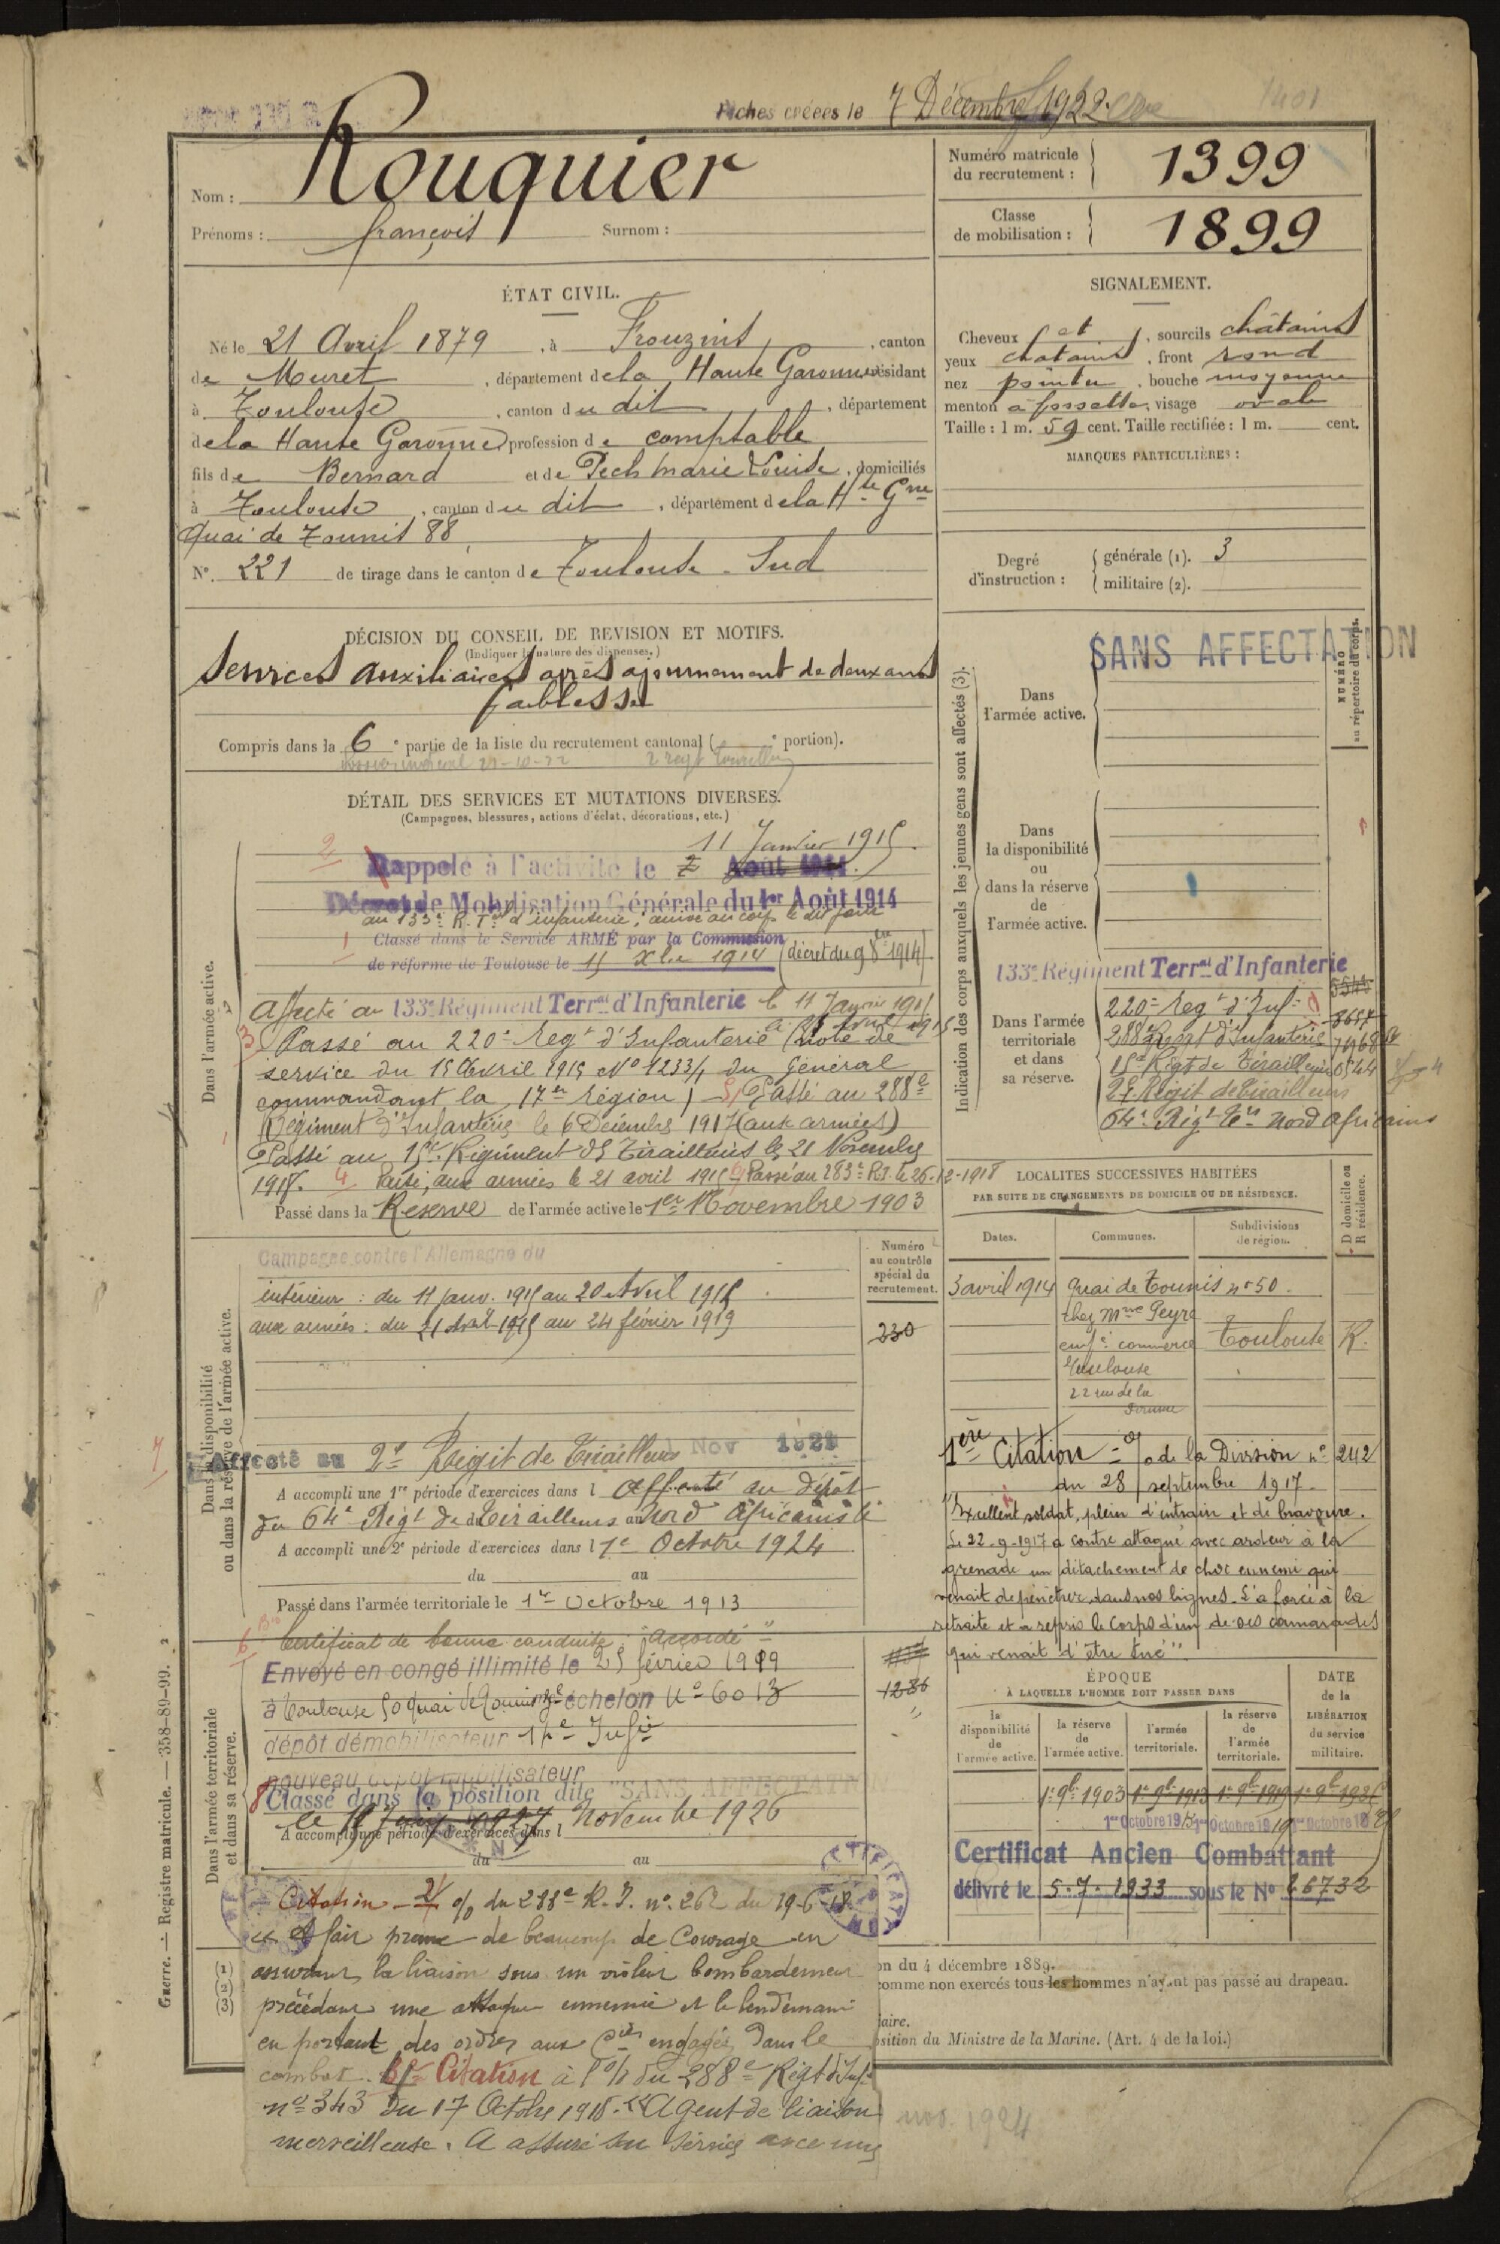 Fiches créées le 7 Décembre 1922
1401
Nom : Rouquier
Prénoms : françois Surnom :
Numéro matricule du recrutement : 1399
Classe de mobilisation : 1899
ÉTAT CIVIL.
Né le 21 Avril 1879, à Frouzins, canton
de Muret, département de la Haute Garonne résidant
à Toulouse, canton du dit, département
de la Haute Garonne profession de comptable
fils de Bernard et de Pech Marie Louise, domiciliés
à Toulouse, canton du dit, département de la Hte Gne
Quai de Tounis 88
N° 221 de tirage dans le canton de Toulouse - Sud
SIGNALEMENT.
Cheveux et, sourcils châtains
yeux chatains, front rond
nez pointu, bouche moyenne
menton à fossette, visage ovale
Taille : 1 m. 59 cent. Taille rectifiée : 1 m. cent.
MARQUES PARTICULIÈRES :
Degré d'instruction : générale (1). 3
militaire (2).
DÉCISION DU CONSEIL DE REVISION ET MOTIFS.
(Indiquer la nature des dispenses.)
Services auxiliaires après ajournement de deux ans
faiblesse
Compris dans la 6e partie de la liste du recrutement cantonal ( e portion).
DÉTAIL DES SERVICES ET MUTATIONS DIVERSES.
(Campagnes, blessures, actions d'éclat, décorations, etc.)
Dans l'armée active.
11 Janvier 1915.
2 Rappelé à l'activité le Août 1914.
Décret de Mobilisation Générale du 1er Août 1914
au 133e R. Tal d'infanterie, arrivé au corps le dit jour
1 Classé dans le Service ARMÉ par la Commission
de réforme de Toulouse le 15 Xbre 1914 (décret du 9 8bre 1914)
Affecté au 133e Régiment Terral d'Infanterie le 11 Janvier 1915
3 Passé au 220e Regt d'Infanterie le 21 Avril 1915 (note de
service du 15 Avril 1915 N° 1233/1 du Général
commandant la 17e région) - 5 Passé au 288e
Régiment d'Infanterie le 6 Décembre 1917 (aux armées)
Passé au 15e Régiment de Tirailleurs le 21 Novembre
1918. 4 Parti aux armées le 21 avril 1915 Passé au 283e R.I. le 26-12-1918
Passé dans la Réserve de l'armée active le 1er Novembre 1903
Indication des corps auxquels les jeunes gens sont affectés (3).
NUMÉRO au répertoire du corps.
SANS AFFECTATION
Dans l'armée active.
Dans la disponibilité ou dans la réserve de l'armée active.
133e Régiment Terral d'Infanterie
Dans l'armée territoriale et dans sa réserve.
220e Regt d'Inf
288e Regt d'Infanterie
15e Regt de Tirailleurs
2e Régit de Tirailleurs
64e Régt Trs Nord Africains
Dans la disponibilité ou dans la réserve de l'armée active.
Campagne contre l'Allemagne du
intérieur : du 11 janv. 1915 au 20 Avril 1915
aux armées : du 21 Avril 1915 au 24 février 1919
Numéro au contrôle spécial du recrutement.
230
7 Affecté au 2e Régit de Tirailleurs Nov
A accompli une 1re période d'exercices dans l Affecté au Dépôt
du 64e Régt de Tirailleurs Nord Africains le
A accompli une 2e période d'exercices dans l 1er Octobre 1924
du au
Passé dans l'armée territoriale le 1er Octobre 1913
LOCALITÉS SUCCESSIVES HABITÉES
PAR SUITE DE CHANGEMENTS DE DOMICILE OU DE RÉSIDENCE.
Dates. Communes. Subdivisions de région. D domicile ou R résidence.
3 avril 1914 Quai de Tounis n° 50
chez Mme Peyre
empé commerce Toulouse R.
Toulouse
22 rue de la
1ère Citation - O/ de la Division n° 242
du 28 septembre 1917.
"Excellent soldat, plein d'entrain et de bravoure.
Le 22-9-1917 a contre attaqué avec ardeur à la
grenade un détachement de choc ennemi qui
venait de pénétrer dans nos lignes. L'a forcé à la
retraite et a repris le corps d'un de ses camarades
qui venait d'être tué".
Dans l'armée territoriale et dans sa réserve.
6 Certificat de bonne conduite : "Accordé"
Envoyé en congé illimité le 25 février 1919
à Toulouse 50 quai de Tounis échelon N° 6013
dépôt démobilisateur 14e Infie
nouveau dépôt mobilisateur
8 Classé dans la position dite "SANS AFFECTATION"
le Novembre 1926
A accompli une période d'exercices dans l
du au
1286
ÉPOQUE
À LAQUELLE L'HOMME DOIT PASSER DANS
la disponibilité de l'armée active. la réserve de l'armée active. l'armée territoriale. la réserve de l'armée territoriale.
DATE de la LIBÉRATION du service militaire.
1er 9bre 1903 1er 9bre 1913 1er 9bre 1919
Certificat Ancien Combattant
délivré le 5.7.1933 sous le N° 26732
Citation - 2e O/ du 288e R.I. n° 262 du 19-6-18
"A fait preuve de beaucoup de Courage en
assurant la liaison sous un violent bombardement
précédant une attaque ennemie et le lendemain
en portant des ordres aux Cies engagées dans le
combat. 3e Citation à l'O/ du 288e Régt d'Infie
n° 343 du 17 Octobre 1918. "Agent de liaison
merveilleux. A assuré son service avec une
on du 4 décembre 1889.
comme non exercés tous les hommes n'ayant pas passé au drapeau.
laire.
osition du Ministre de la Marine. (Art. 4 de la loi.)
nov. 1924
Guerre. — Registre matricule. — 358-89-99.
(1)
(2)
(3)